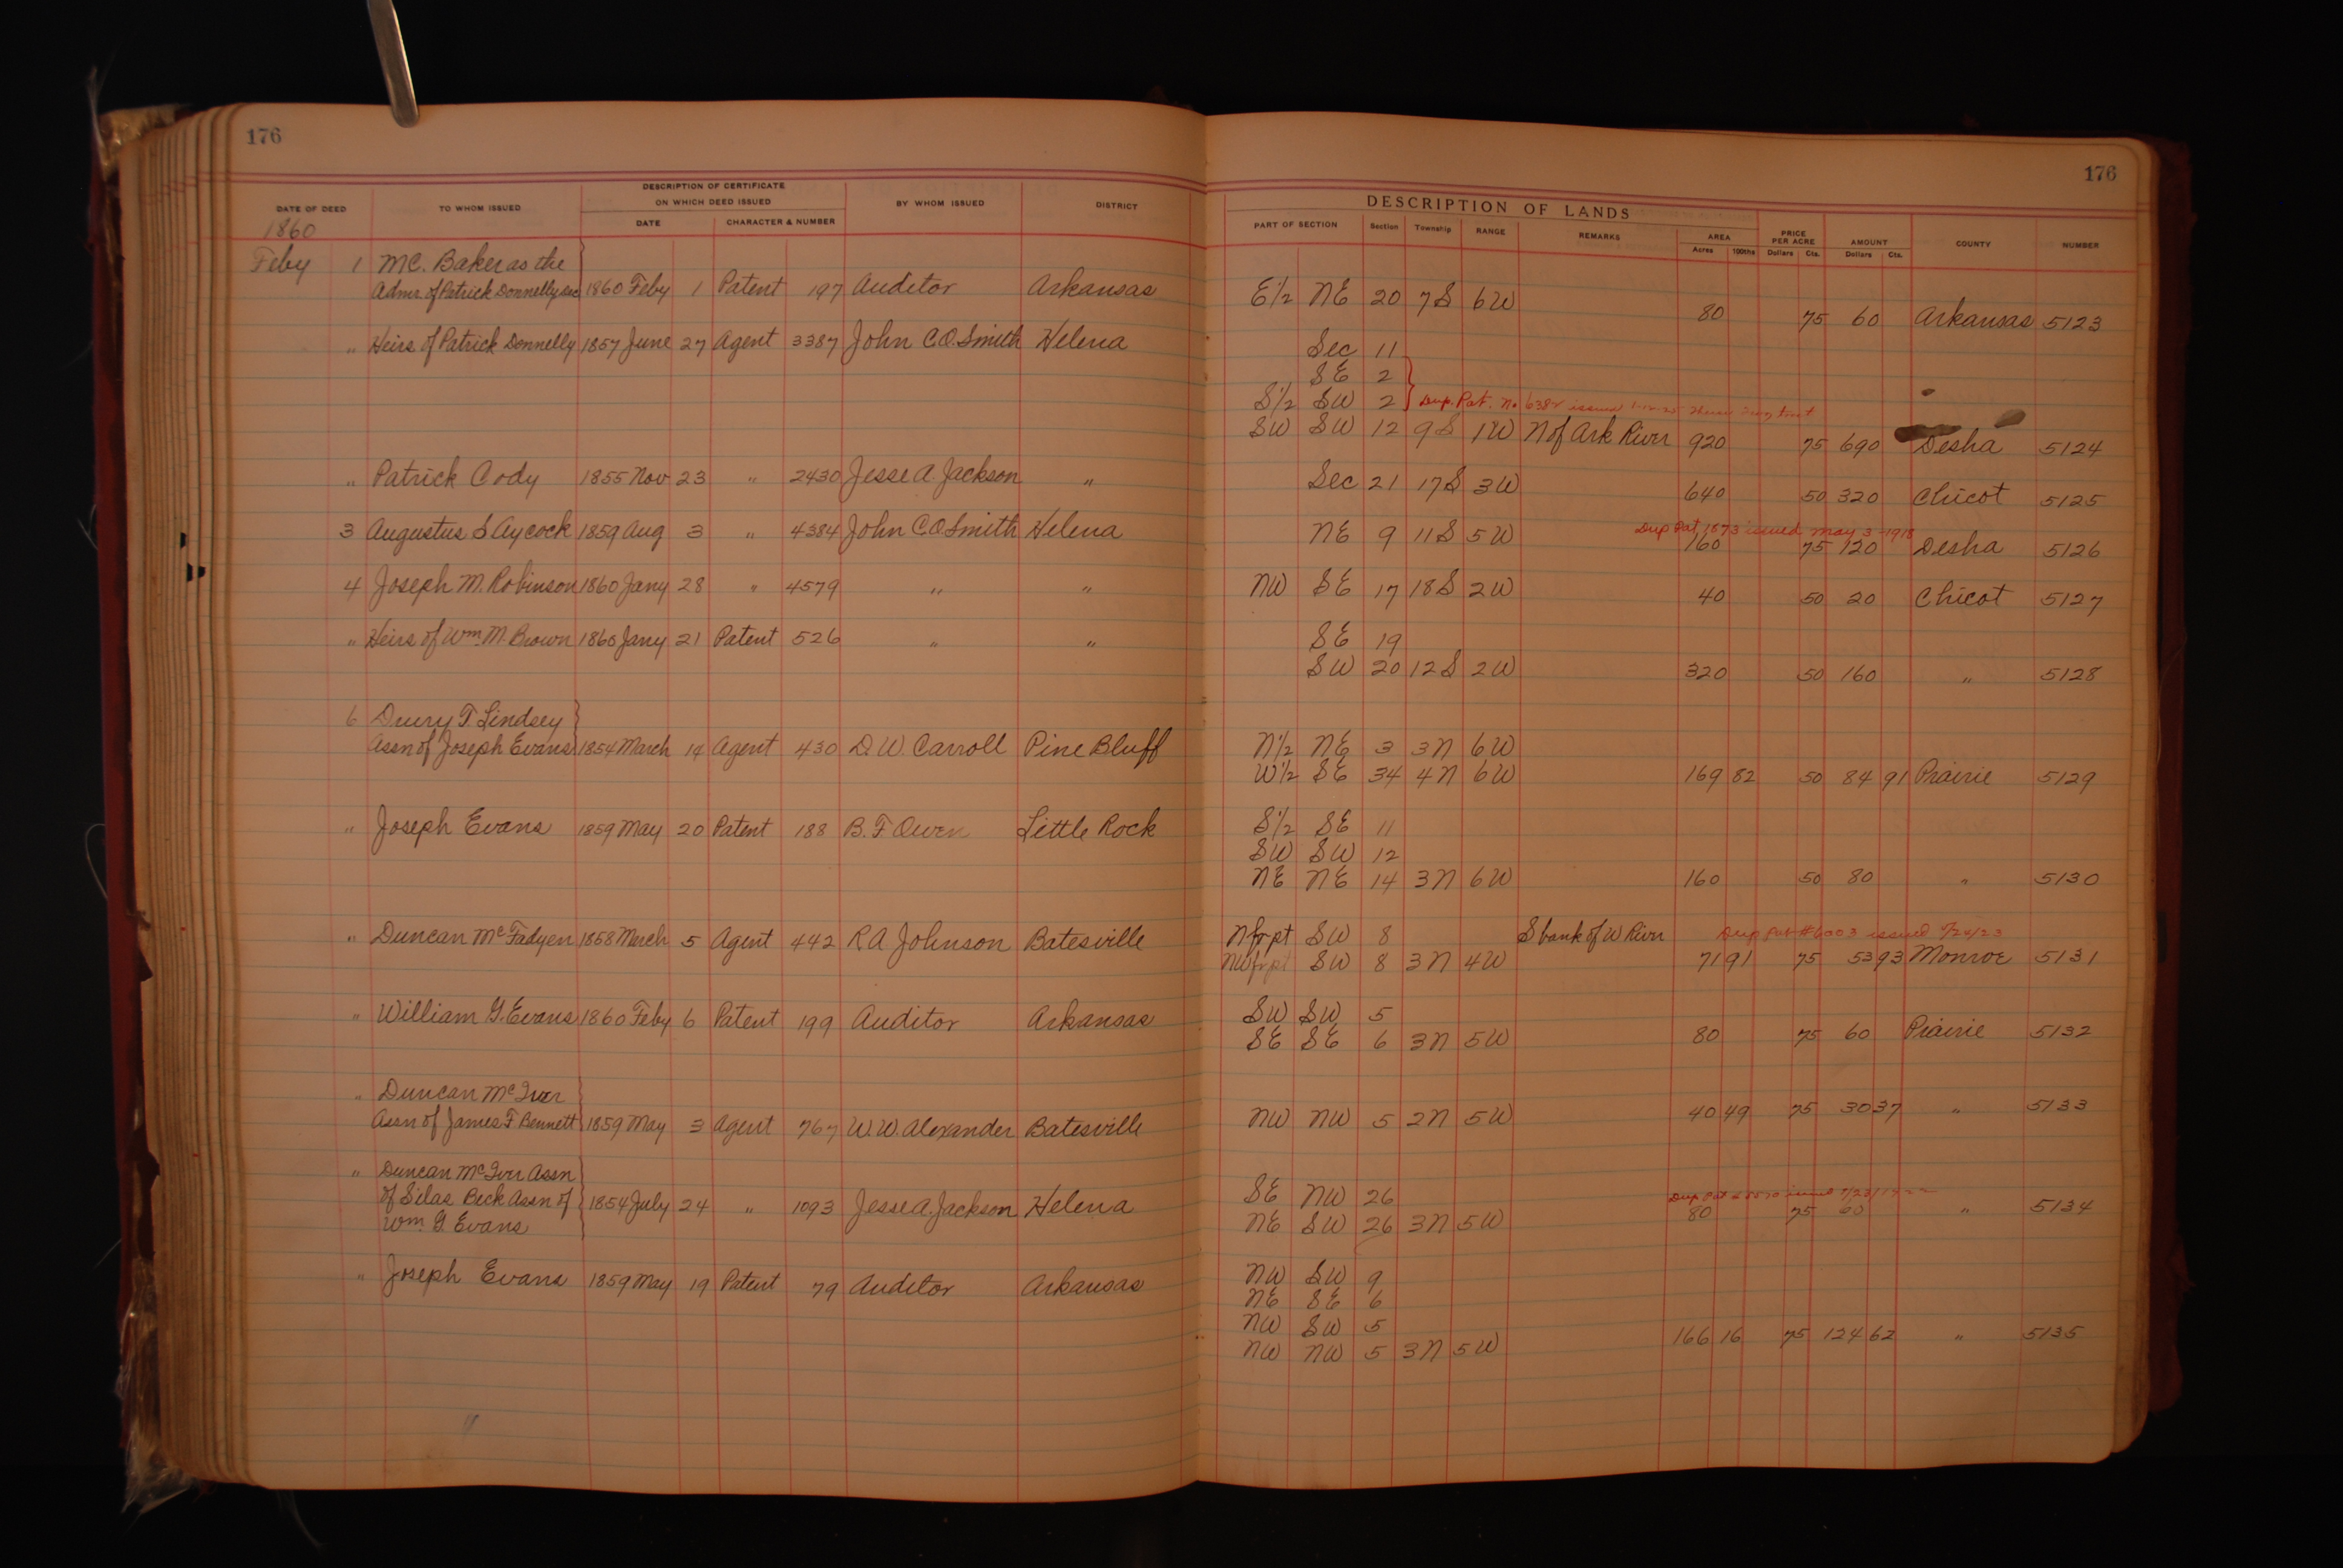 176
176
DATE OF DEED TO WHOM ISSUED DESCRIPTION OF CERTIFICATE ON WHICH DEED ISSUED DATE CHARACTER & NUMBER BY WHOM ISSUED DISTRICT
DESCRIPTION OF LANDS
PART OF SECTION Section Township RANGE REMARKS AREA Acres 100ths PRICE PER ACRE Dollars Cts. AMOUNT Dollars Cts. COUNTY NUMBER
1860
Feby 1 MC. Baker as the
Admr. of Patrick Donnelly Dec 1860 Feby 1 Patent 197 Auditor Arkansas E½ NE 20 7S 6W 80 75 60 Arkansas 5123
" Heirs of Patrick Donnelly 1857 June 27 Agent 3387 John C.O. Smith Helena Sec 11
SE 2
S½ SW 2 Dup. Pat. No. 6382 issued
SW SW 12 9S 1W N of Ark River 920 75 690 Desha 5124
" Patrick Cody 1855 Nov 23 " 2430 Jesse A. Jackson " Sec 21 17S 3W 640 50 320 Chicot 5125
Dup Pat 1873 issued May 3-1918
3 Augustus S Aycock 1859 Aug 3 " 4384 John C.O. Smith Helena NE 9 11S 5W 160 75 120 Desha 5126
4 Joseph M. Robinson 1860 Jany 28 " 4579 " " NW SE 17 18S 2W 40 50 20 Chicot 5127
" Heirs of Wm. M. Brown 1860 Jany 21 Patent 526 " " SE 19
SW 20 12S 2W 320 50 160 " 5128
6 Drury T Lindsey
Assn of Joseph Evans 1854 March 19 Agent 430 D. W. Carroll Pine Bluff N½ NE 3 3N 6W
W½ SE 34 4N 6W 169 82 50 84 91 Prairie 5129
" Joseph Evans 1859 May 20 Patent 188 B. F Owen Little Rock S½ SE 11
SW SW 12
NE NE 14 3N 6W 160 50 80 " 5130
" Duncan McFadyen 1858 March 5 Agent 442 R A Johnson Batesville N frpt SW 8 S bank of W River Dup Pat # 6003 issued
NW frpt SW 8 3N 4W 71 91 75 53 93 Monroe 5131
" William G. Evans 1860 Feby 6 Patent 199 Auditor Arkansas SW SW 5
SE SE 6 3N 5W 80 75 60 Prairie 5132
" Duncan McIver
Assn of James F Bennett 1859 May 3 Agent 767 W. W. Alexander Batesville NW NW 5 2N 5W 40 49 75 30 37 " 5133
" Duncan McIver Assn
of Silas Beck Assn of 1854 July 24 " 1093 Jesse A. Jackson Helena SE NW 26 Dup Pat issued
Wm. G. Evans NE SW 26 3N 5W 80 75 60 " 5134
" Joseph Evans 1859 May 19 Patent 79 Auditor Arkansas NW SW 9
NE SE 6
NW SW 5
NW NW 5 3N 5W 166 16 75 124 62 " 5135